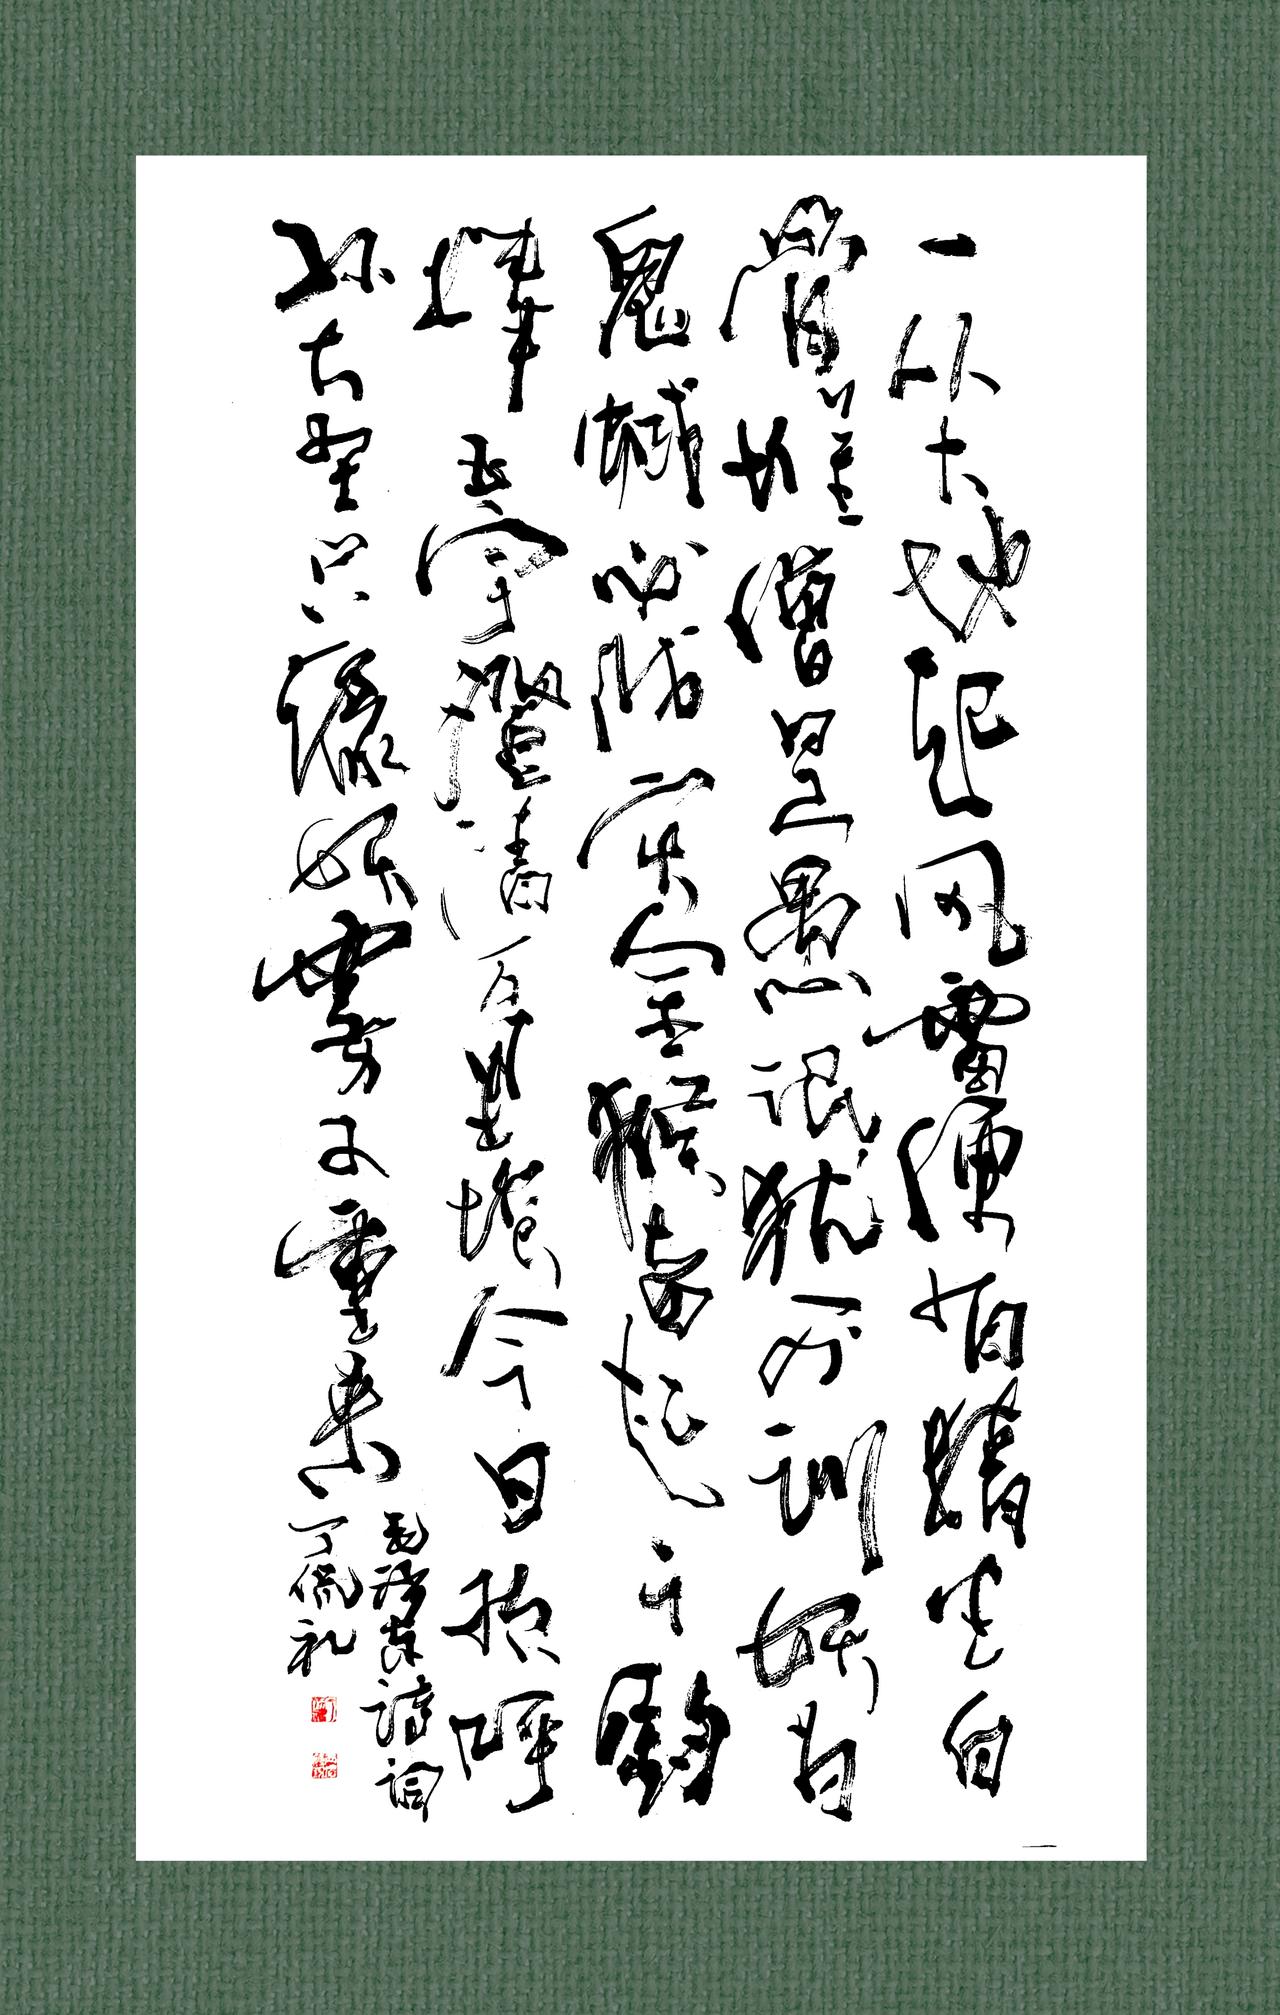 一从大地起风雷便有精生白
骨堆僧是愚氓犹可训妖为
鬼蜮必成灾金猴奋起千钧
棒玉宇澄清万里埃今日欢呼
孙大圣只缘妖雾又重来
毛泽东诗词
丁侃礼